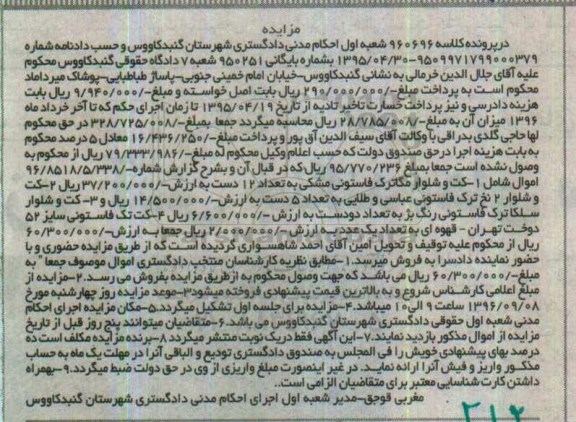 مزایده
درپرونده کلاسه ۹۶۰۶۹۶ شعبه اول احکام مدنی دادگستری شهرستان گنبدکاووس و حسب دادنامه شماره
۹۵۰۹۹۷۱۷۹۹۰۰۰۳۷۹-۱۳۹۵/۰۴/۳۰ بشماره بایگانی ۹۵۰۲۵۱ شعبه ۷ دادگاه حقوقی گنبدکاووس محکوم
علیه آقای جلال الدین خرمالی به نشانی گنبدکاووس-خیابان امام خمینی جنوبی-پاساژ طباطبایی-پوشاک میرداماد
محکوم است به پرداخت مبلغ/۲۹۰/۰۰۰/۰۰۰ ریال بابت اصل خواسته و مبلغ-/۹/۹۴۰/۰۰۰ ریال بابت
هزینه دادرسی و نیز پرداخت خسارت تاخیر تادیه از تاریخ ۱۳۹۵/۰۴/۱۹ تا زمان اجرای حکم که تا آخر خرداد ماه
۱۳۹۶ میزان آن به مبلغ-/۲۸/۷۸۵/۰۰۸ ریال محاسبه میگردد جمعا بمبلغ-/۳۲۸/۷۲۵/۰۰۸ در حق محکوم
لها حاجی گلدی بدراقی با وکالت آقای سیف الدین آق پور و پرداخت مبلغ-/۱۶/۴۳۶/۲۵۰ ریال معادل ۵ درصد محکوم
به بابت هزینه اجرا درحق صندوق دولت که حسب اعلام وکیل محکوم له مبلغ-/۷۹/۳۳۳/۹۸۶ ریال از محکوم به
وصول نشده است جمعا بمبلغ ۹۵/۷۷۰/۲۳۶ ریال که در قبال آن و بشرح گزارش شماره-/۹۶/۸۵۱۸/۵/۳۳۸
اموال شامل ۱-کت و شلوار مگاترک فاستونی مشکی به تعداد ۱۲ دست به ارزش-/۳۷/۲۰۰/۰۰۰ ریال ۲-کت
و شلوار ۲ نخ ترک فاستونی عباسی و طلایی به تعداد ۵ دست به ارزش-/۱۴/۵۰۰/۰۰۰ ریال و ۳- کت و شلوار
سلکا ترک فاستونی رنگ بژ به تعداد دودست به ارزش -/۶/۶۰۰/۰۰۰ ریال ۴-کت تک فاستونی سایز ۵۲
دوخت تهران - قهوه ای به تعداد یک عدد به ارزش -/۲/۰۰۰/۰۰۰ ریال جمعا به ارزش-/۶۰/۳۰۰/۰۰۰
ریال از محکوم علیه توقیف و تحویل امین آقای احمد شاهسواری گردیده است که از طریق مزایده حضوری و با
حضور نماینده دادسرا به فروش میرسد.۱-مطابق نظریه کارشناسان منتخب دادگستری اموال موصوف جمعا " به
مبلغ/۶۰/۳۰۰/۰۰۰ ریال می باشد که جهت وصول محکوم به ازطریق مزایده بفروش می رسد.۲-مزایده از
مبلغ اعلامی کارشناس شروع و به بالاترین قیمت پیشنهادی فروخته میشود۳-موعد مزایده روز چهارشنبه مورخ
۱۳۹۶/۰۹/۰۸ ساعت ۹ الی۱۰ میباشد.۴-مزایده برای جلسه اول تشکیل میگردد.۵-مکان مزایده اجرای احکام
مدنی شعبه اول حقوقی دادگستری شهرستان گنبدکاووس می باشد.۶-متقاضیان میتوانند پنج روز قبل از تاریخ
مزایده از اموال مذکور بازدید نمایند.۷-این آگهی فقط دریک نوبت منتشر میگردد ۸-برنده مزایده مکلف است ده
درصد بهای پیشنهادی خویش را فی المجلس به صندوق دادگستری تودیع و الباقی آنرا در مهلت یک ماه به حساب
مذکور واریز و فیش آنرا ارائه نمایـد. در غیر اینصورت مبلغ واریزی از وی در حق دولت ضبط میگردد.۹-بهمراه
داشتن کارت شناسایی معتبر برای متقاضیان الزامی است..
مغربی قوجق-مدیر شعبه اول اجرای احکام مدنی دادگستری شهرستان گنبدکاووس